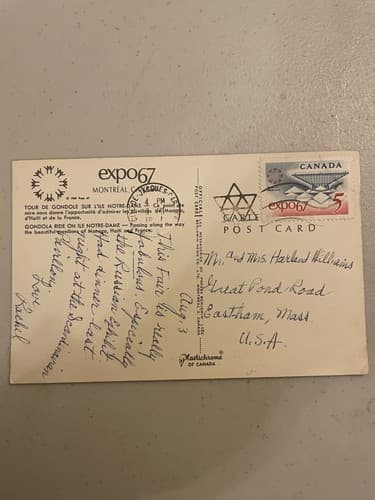 expo67
MONTRÉAL
TOUR DE GONDOLE SUR L'ILE NOTRE-DAME —
nous donne l'opportunité d'admirer les de Monaco,
d'Haïti et de la France.
GONDOLA RIDE ON ILE NOTRE-DAME — Passing along the way
the beautiful pavilions of Monaco, Haiti and France.
Aug 3
This Fair is really
fabulous. Especially
the Russian exhibit
Had dinner last
night at the Scandinavian
Pavilion,
Love
Rachel
PM
CANADA
expo67
5
POST CARD
Mr. and Mrs. Harland Williams
Great Pond Road
Eastham, Mass
U.S.A.
Plastichrome ®
OF CANADA